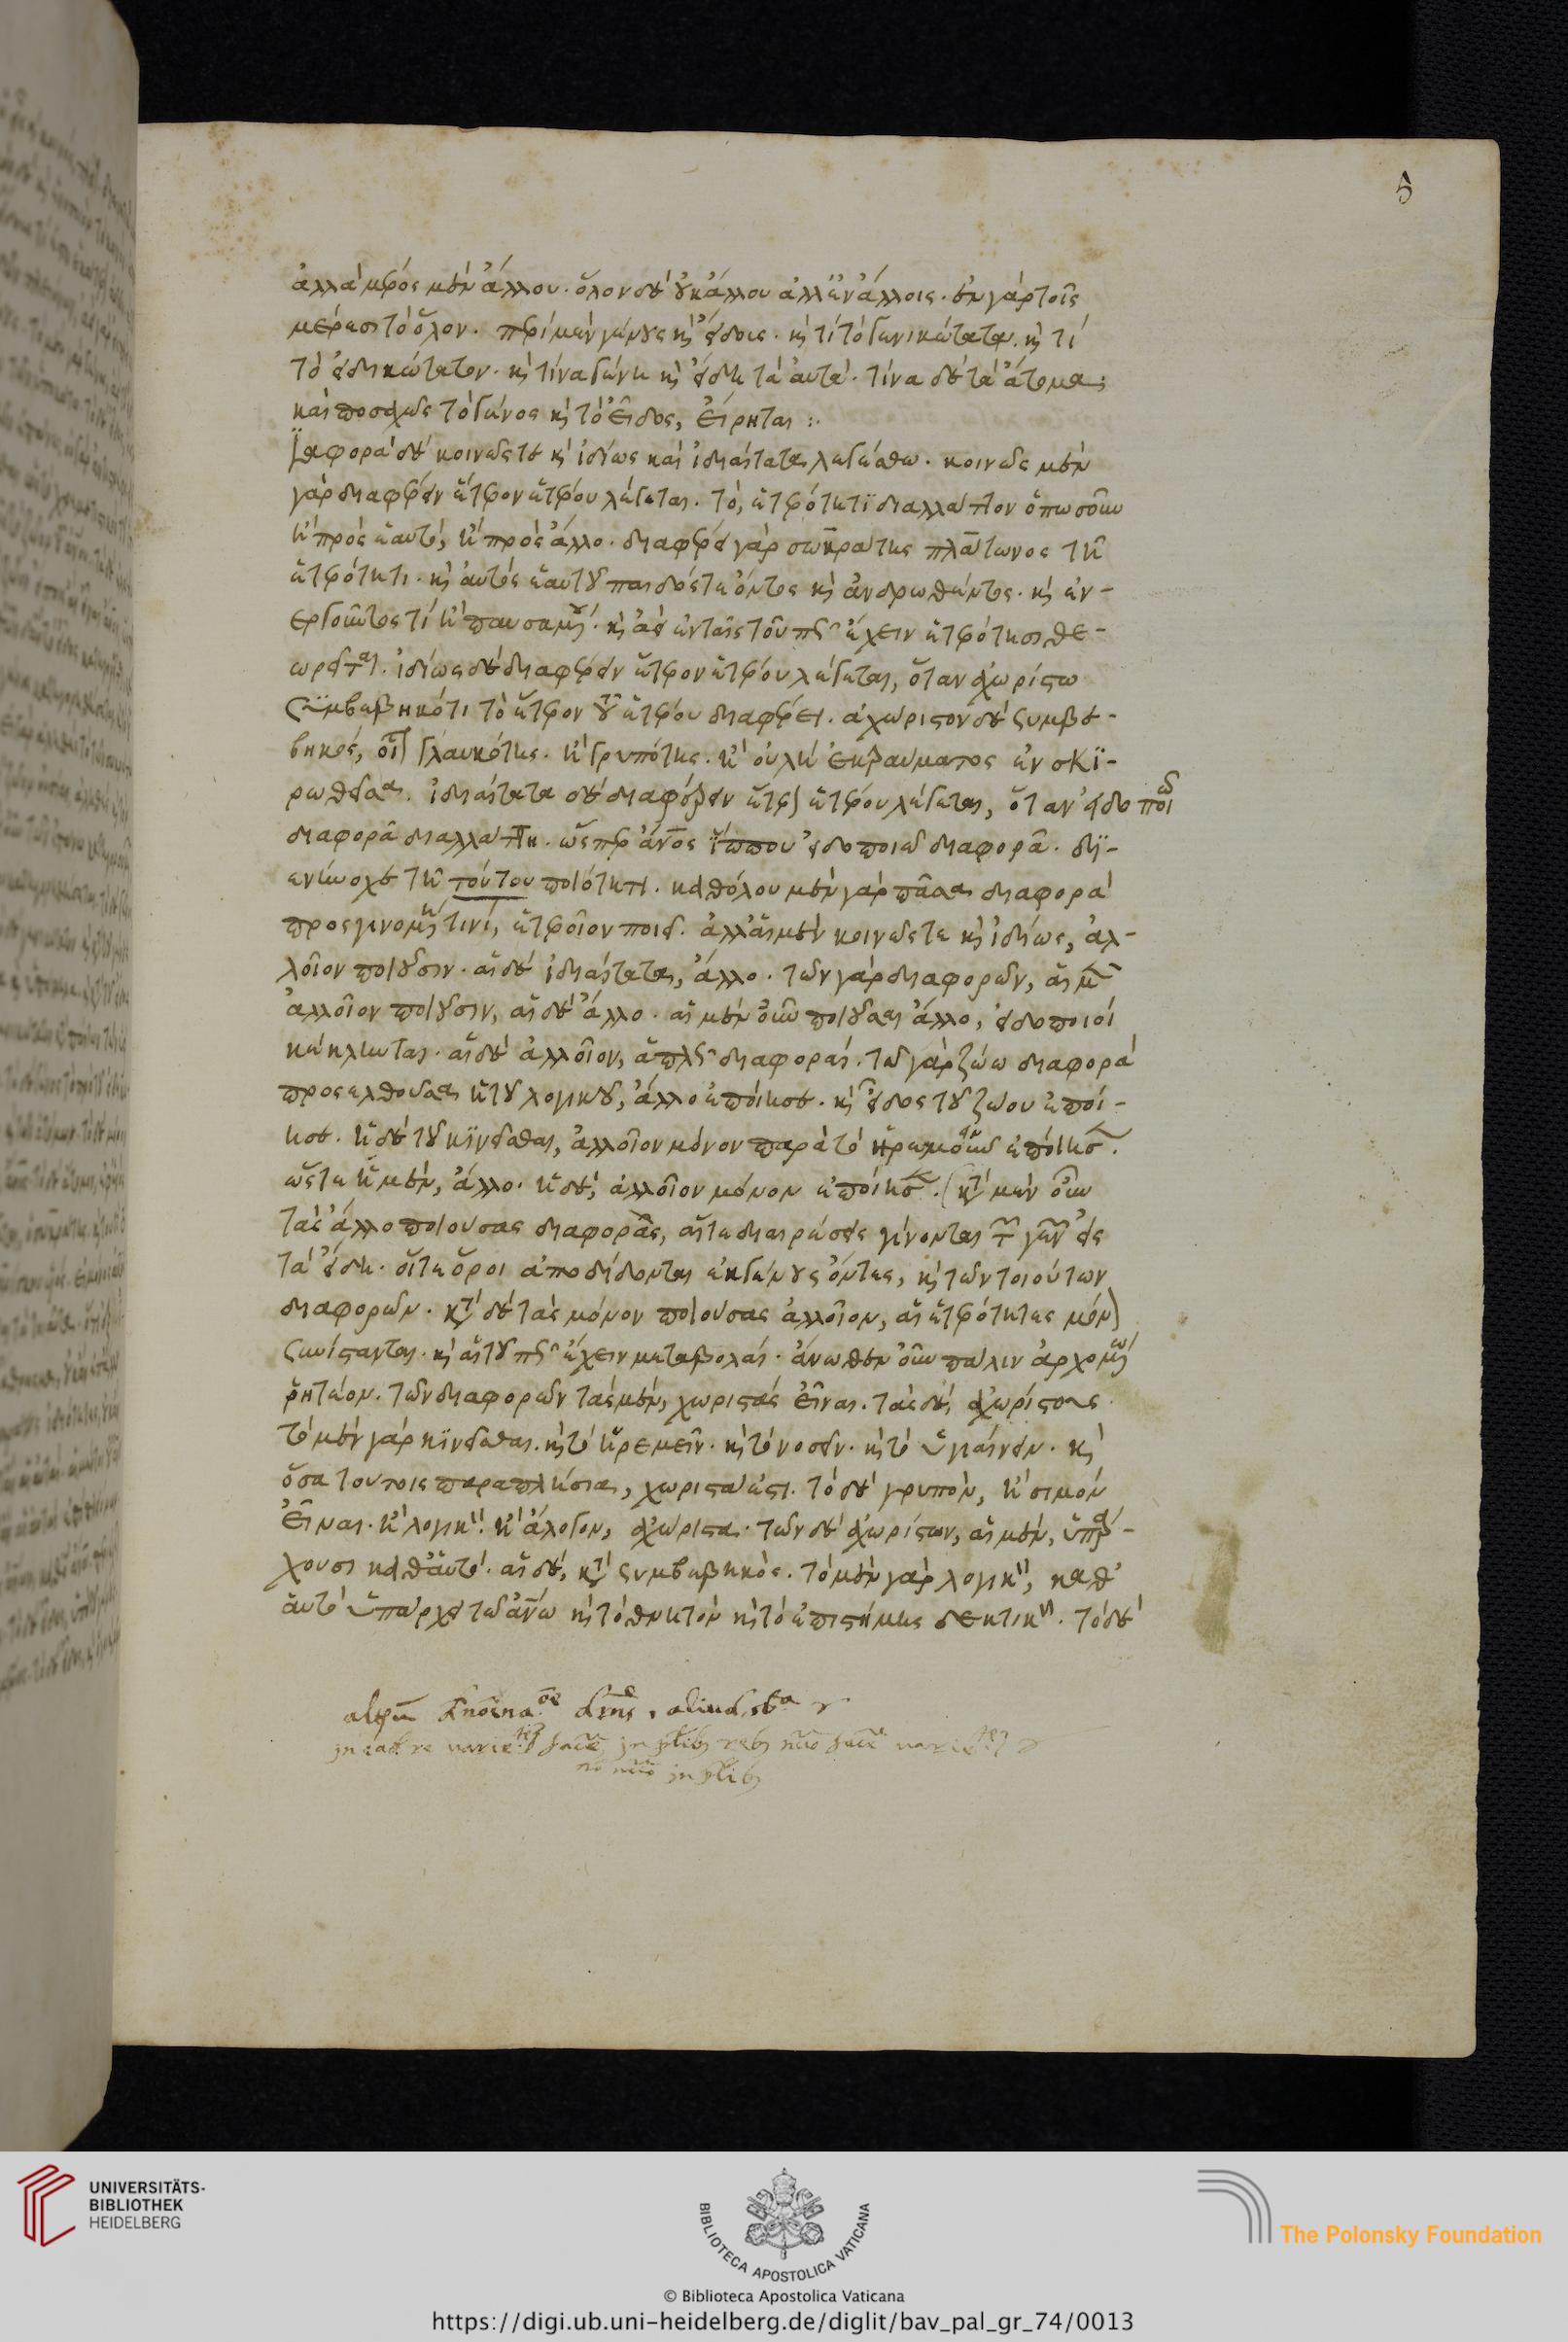 5
ἀλλὰ μέρος μὲν ἄλλου. ὅλον δὲ οὐκ ἄλλου ἀλλ' ἐν ἄλλοις. ἐν γὰρ τοῖς
μέρεσι τὸ ὅλον. περὶ μὲν γένους κ̀ εἴδους. κ̀ τί τὸ γενικώτατον. κ̀ τί
τὸ εἰδικώτατον. κ̀ τίνα γένη κ̀ εἴδη τὰ αὐτά. τίνα δὲ τὰ ἄτομα;
καὶ ποσαχῶς τὸ γένος κ̀ τὸ εἶδος, εἴρηται :.
αφορὰ δὲ κοινῶς τε κ̀ ἰδίως καὶ ἰδιαίτατα λεγέσθω. κοινῶς μὲν
γὰρ διαφέρειν ἕτερον ἑτέρου λέγεται. τὸ, ἑτερότητϊ διαλλάττον ὁπωσοῦν
ἢ πρὸς ἑαυτὸ, ἢ πρὸς ἄλλο. διαφέρει γὰρ σωκράτης πλάτωνος τῆ
ἑτερότητι. κ̀ αὐτὸς ἑαυτοῦ παιδός τε ὄντος κ̀ ἀνδρωθέντος. κ̀ ἐν-
εργοῦντος τί ἢ παυσαμέ. κ̀ ἀεὶ ἐν ταῖς τοῦ πῶς ἔχειν ἑτερότησι θε-
ωρεῖται. ἰδίως δὲ διαφέρειν ἕτερον ἑτέρου λέγεται, ὅταν ἀχωρίστω
συμβεβηκότι τὸ ἕτερον τοῦ ἑτέρου διαφέρει. ἀχώριστον δὲ συμβε-
βηκὸς, οἷον γλαυκότης. ἢ γρυπότης. ἢ οὐλὴ ἐκ τραύματος ἐνσκϊ-
ρωθεῖσα. ἰδιαίτατα δὲ διαφέρειν ἕτερ ἑτέρου λέγεται, ὅταν εἰδοποιῶ
διαφορᾶ διαλλάττη. ὥσπερ ἄνος ἵππου εἰδοποιῶ διαφορᾶ. δϊ-
ενήνοχε τῆ τούτου ποιότητι. καθόλου μὲν γὰρ πᾶσα διαφορὰ
προσγινομένη τινὶ, ἑτεροῖον ποιεῖ. ἀλλ' αἱ μὲν κοινῶς τε κ̀ ἰδίως, ἀλ-
λοῖον ποιοῦσιν. αἱ δὲ ἰδιαίτατα, ἄλλο. τῶν γὰρ διαφορῶν, αἱ μ
ἀλλοῖον ποιοῦσιν, αἱ δὲ ἄλλο. αἱ μὲν οὖν ποιοῦσαι ἄλλο, εἰδοποιοὶ
κέκληνται. αἱ δὲ ἀλλοῖον, ἁπλῶς διαφοραί. τῶ γὰρ ζώω διαφορὰ
προσελθοῦσα ἡ τοῦ λογικοῦ, ἄλλο ἐποίησε. κ̀ εἶδος τοῦ ζώου ἐποί-
ησε. ἡ δὲ τοῦ κϊνεῖσθαι, ἀλλοῖον μόνον παρὰ τὸ ἠρεμοῦν ἐποίησ.
ὥστε ἡ μὲν, ἄλλο. ἡ δὲ, ἀλλοῖον μόνον ἐποίησ. κτ̀ μὲν οὖν
τὰς ἄλλο ποιούσας διαφορὰς, αἵ τε διαιρέσεις γίνονται τ γεν εἰς
τὰ εἴδη. οἵ τε ὅροι ἀποδίδονται ἐκ γένους ὄντες, κ̀ τῶν τοιούτων
διαφορῶν. κτ̀ δὲ τὰς μόνον ποιούσας ἀλλοῖον, αἱ ἑτερότητες μόν
συνίστανται. κ̀ αἱ τοῦ πῶς ἔχειν μεταβολαί. ἄνωθεν οὖν πάλιν ἀρχομέ
ῥητέον. τῶν διαφορῶν τὰς μὲν, χωριστὰς εἶναι. τὰς δὲ, ἀχωρίστους.
τὸ μὲν γὰρ κϊνεῖσθαι. κ̀ τὸ ἠρεμεῖν. κ̀ τὸ νοσεῖν. κ̀ τὸ ὑγιαίνειν. κ̀
ὅσα τούτοις παραπλήσια, χωριστά ἐστι. τὸ δὲ γρυπὸν, ἢ σιμὸν
εἶναι. ἢ λογικ. ἢ ἄλογον, ἀχώριστα. τῶν δὲ ἀχωρίστων, αἱ μὲν, ὑπάρ-
χουσι καθ' αὑτό. αἱ δὲ, κτ̀ συμβεβηκός. τὸ μὲν γὰρ λογικ, καθ'
αὑτὸ ὑπάρχει τῶ ἀνω κ̀ τὸ θνητὸν κ̀ τὸ ἐπιστήμης δεκτικ. τὸ δὲ
UNIVERSITÄTS-
BIBLIOTHEK
HEIDELBERG
BIBLIOTECA APOSTOLICA VATICANA
The Polonsky Foundation
© Biblioteca Apostolica Vaticana
https://digi.ub.uni-heidelberg.de/diglit/bav_pal_gr_74/0013